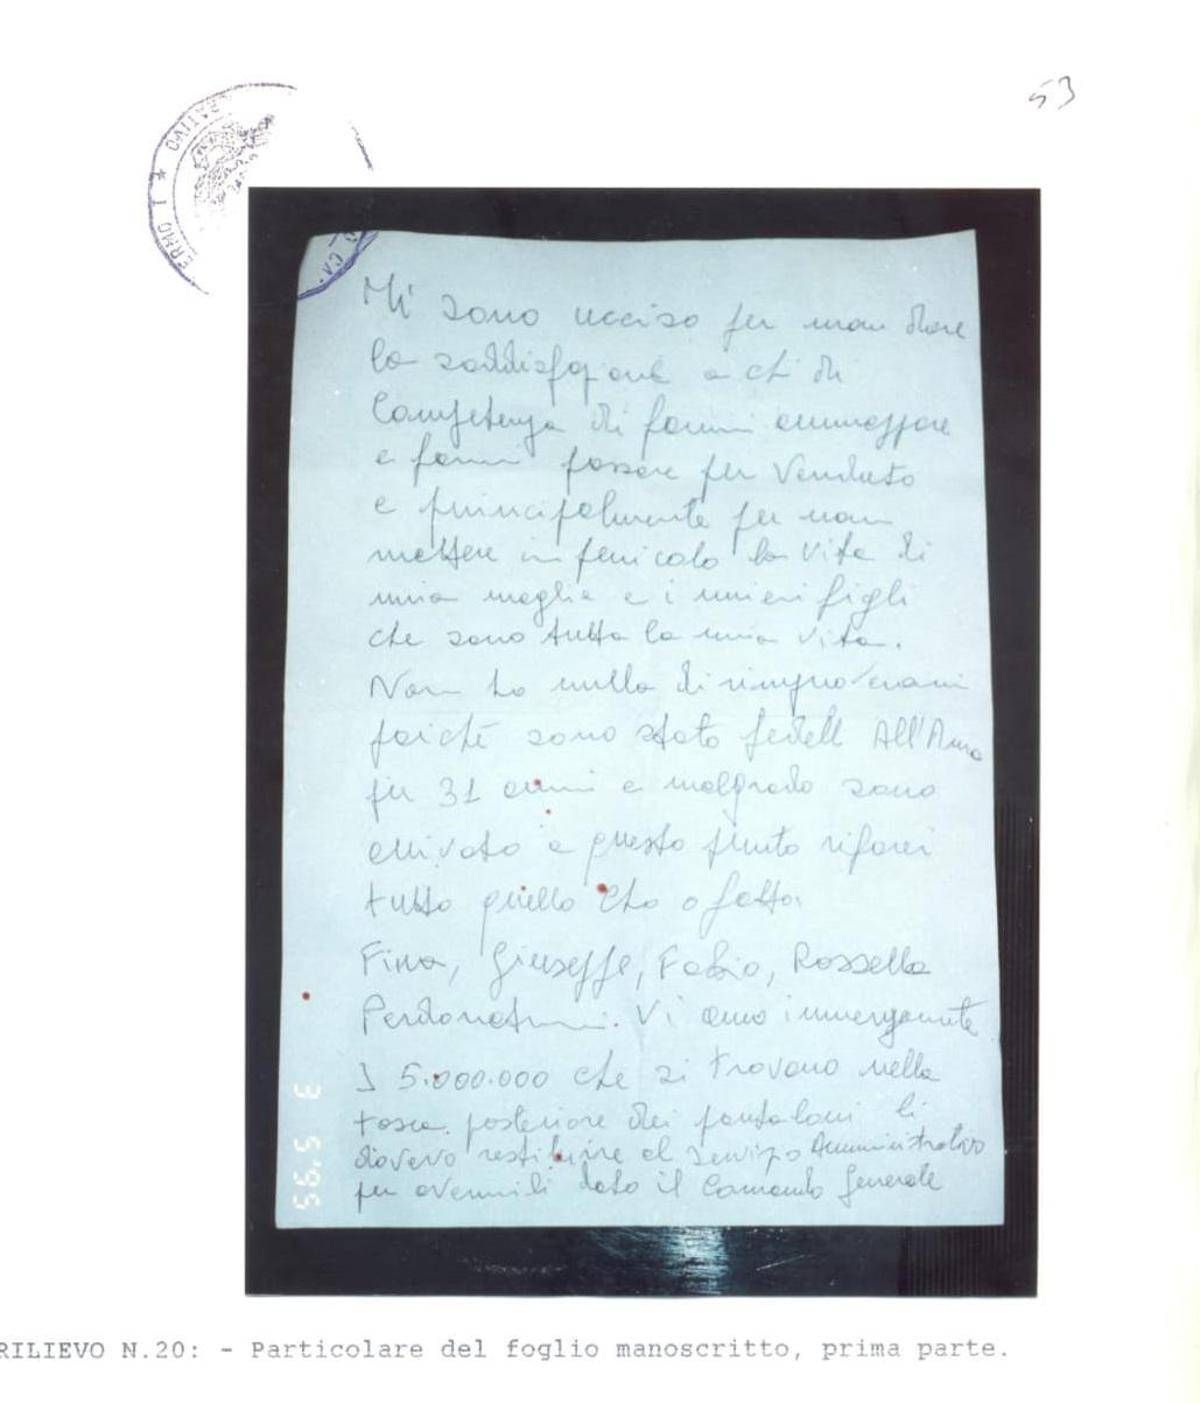 53
ERMO 1 ★
Mi sono ucciso per non dare
la soddisfazione a chi di
Competenza di farmi ammazzare
e farmi passare per Venduto
e principalmente per non
mettere in pericolo la vita di
mia moglie e i miei figli
che sono tutta la mia vita.
Non ho nulla di rimproverarmi
poichè sono stato fedele All'Arma
per 31 anni e malgrado sono
arrivato a questo punto rifarei
tutto quello che o fatto.
Fina, Giuseppe, Fabio, Rossella
Perdonatemi. Vi amo immensamente
5.000.000 che si trovano nella
tasca posteriore dei pantaloni li
dovevo restituire al Servizio Amministrativo
per avermili dato il Comando Generale
3 5'95
RILIEVO N.20: - Particolare del foglio manoscritto, prima parte.